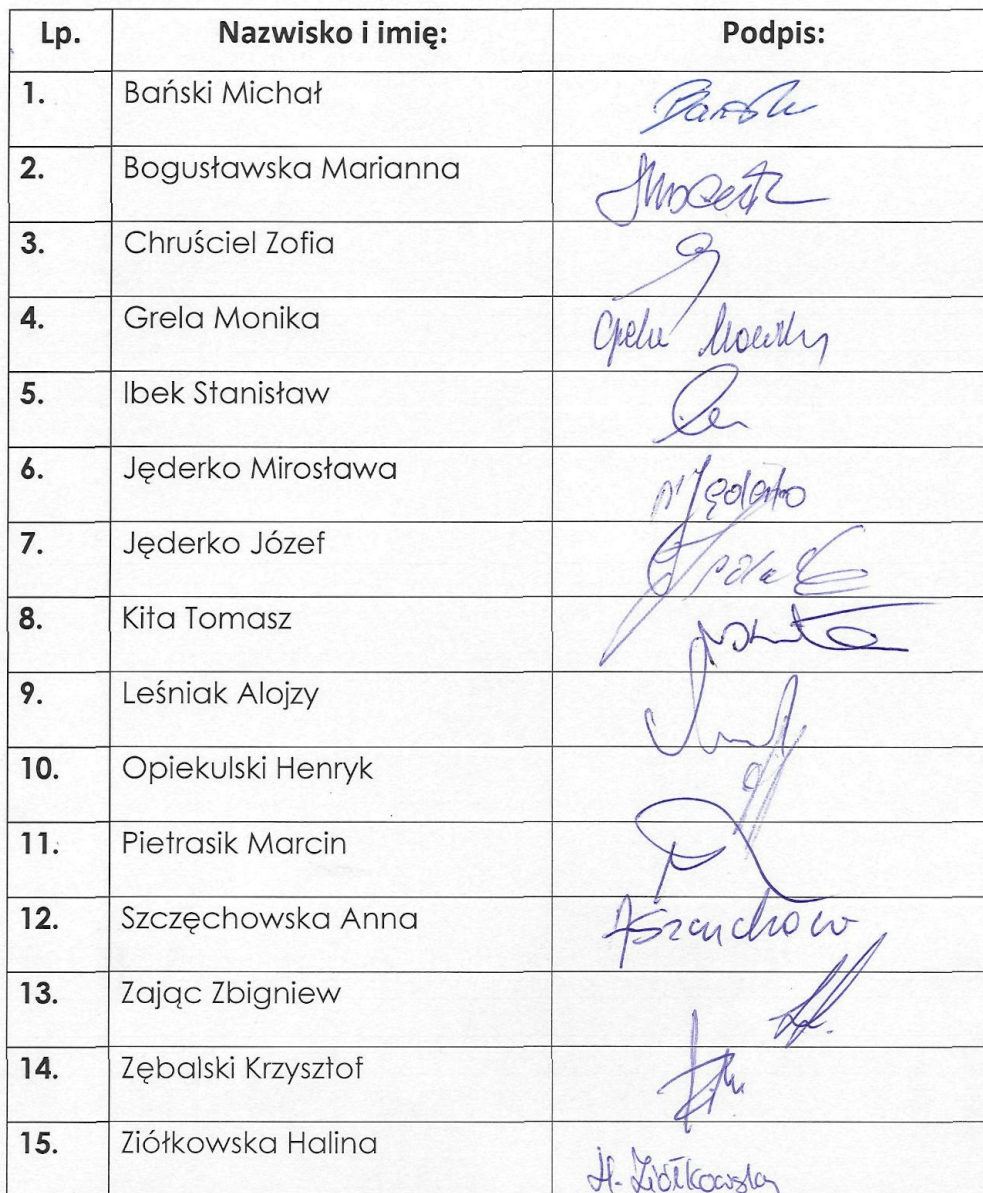 Lp. Nazwisko i imię: Podpis:
1. Bański Michał
2. Bogusławska Marianna
3. Chruściel Zofia
4. Grela Monika
5. Ibek Stanisław
6. Jęderko Mirosława M Jęderko
7. Jęderko Józef
8. Kita Tomasz
9. Leśniak Alojzy
10. Opiekulski Henryk
11. Pietrasik Marcin
12. Szczęchowska Anna
13. Zając Zbigniew
14. Zębalski Krzysztof
15. Ziółkowska Halina H. Ziółkowska